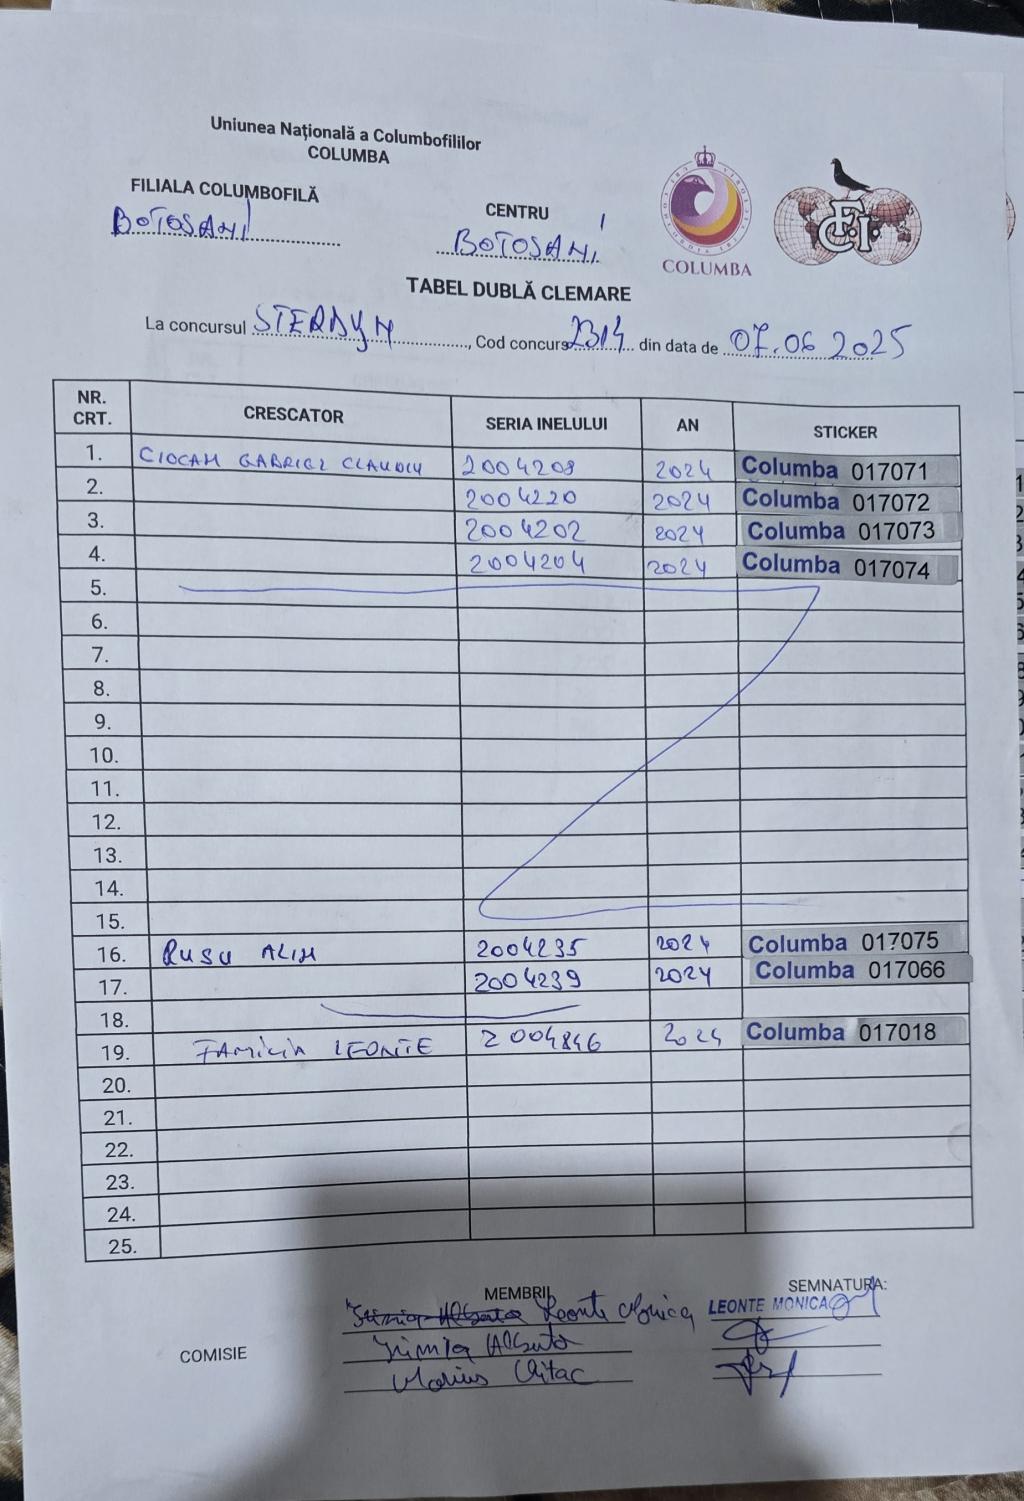 Uniunea Națională a Columbofililor
COLUMBA
FILIALA COLUMBOFILĂ
BOTOSANI
CENTRU
BOTOSANI
COLUMBA
F.C.I.
TABEL DUBLĂ CLEMARE
La concursul STERDYN, Cod concurs 2314 din data de 07.06 2025
NR. CRT. CRESCATOR SERIA INELULUI AN STICKER
1. CIOCAN GABRIEL CLAUDIU 2004208 2024 Columba 017071
2. 2004220 2024 Columba 017072
3. 2004202 2024 Columba 017073
4. 2004204 2024 Columba 017074
5.
6.
7.
8.
9.
10.
11.
12.
13.
14.
15.
16. RUSU ALIN 2004235 2024 Columba 017075
17. 2004239 2024 Columba 017066
18.
19. FAMILIA LEONTE 2004846 2024 Columba 017018
20.
21.
22.
23.
24.
25.
MEMBRII SEMNATURA:
Leonte Monica LEONTE MONICA
COMISIE
Marius